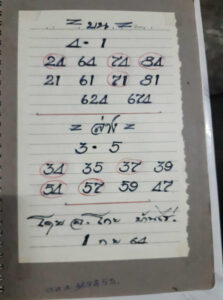 = บน =
4 - 1
24 64 74 84
21 61 71 81
624 674
= ล่าง =
3 - 5
34 35 37 39
54 57 59 47
โดย อ. โกย
1 กย 64